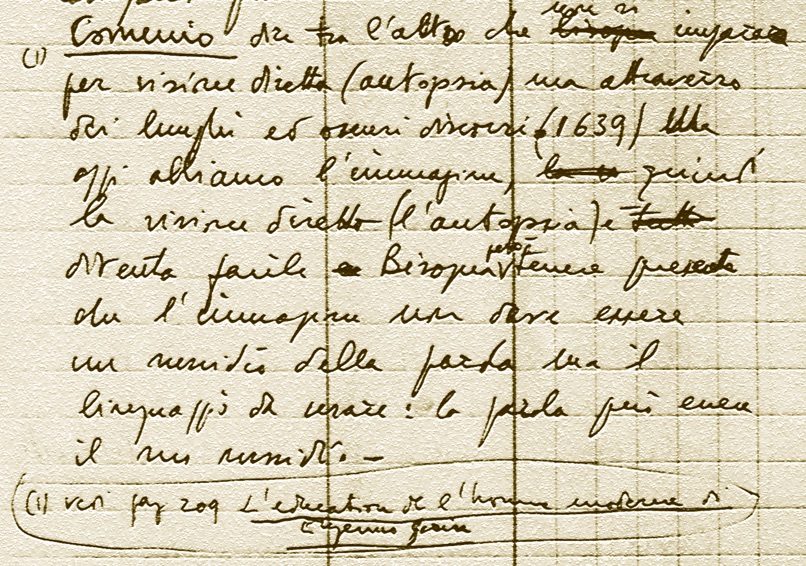 (1) Comenio dice tra l'altro che non si bisogna impara
per visione diretta (autopsia) ma attraverso
dei lunghi ed oscuri discorsi (1639)
oggi abbiamo l'immagine, quindi
la visione diretta (l'autopsia) e tutto
diventa facile e Bisogna però tenere presente
che l'immagine non deve essere
un sussidio della parola ma il
linguaggio da usare: la parola può essere
il suo sussidio. –
(1) vedi pag 209 L'education de l'homme moderne di
Eugenio Garin